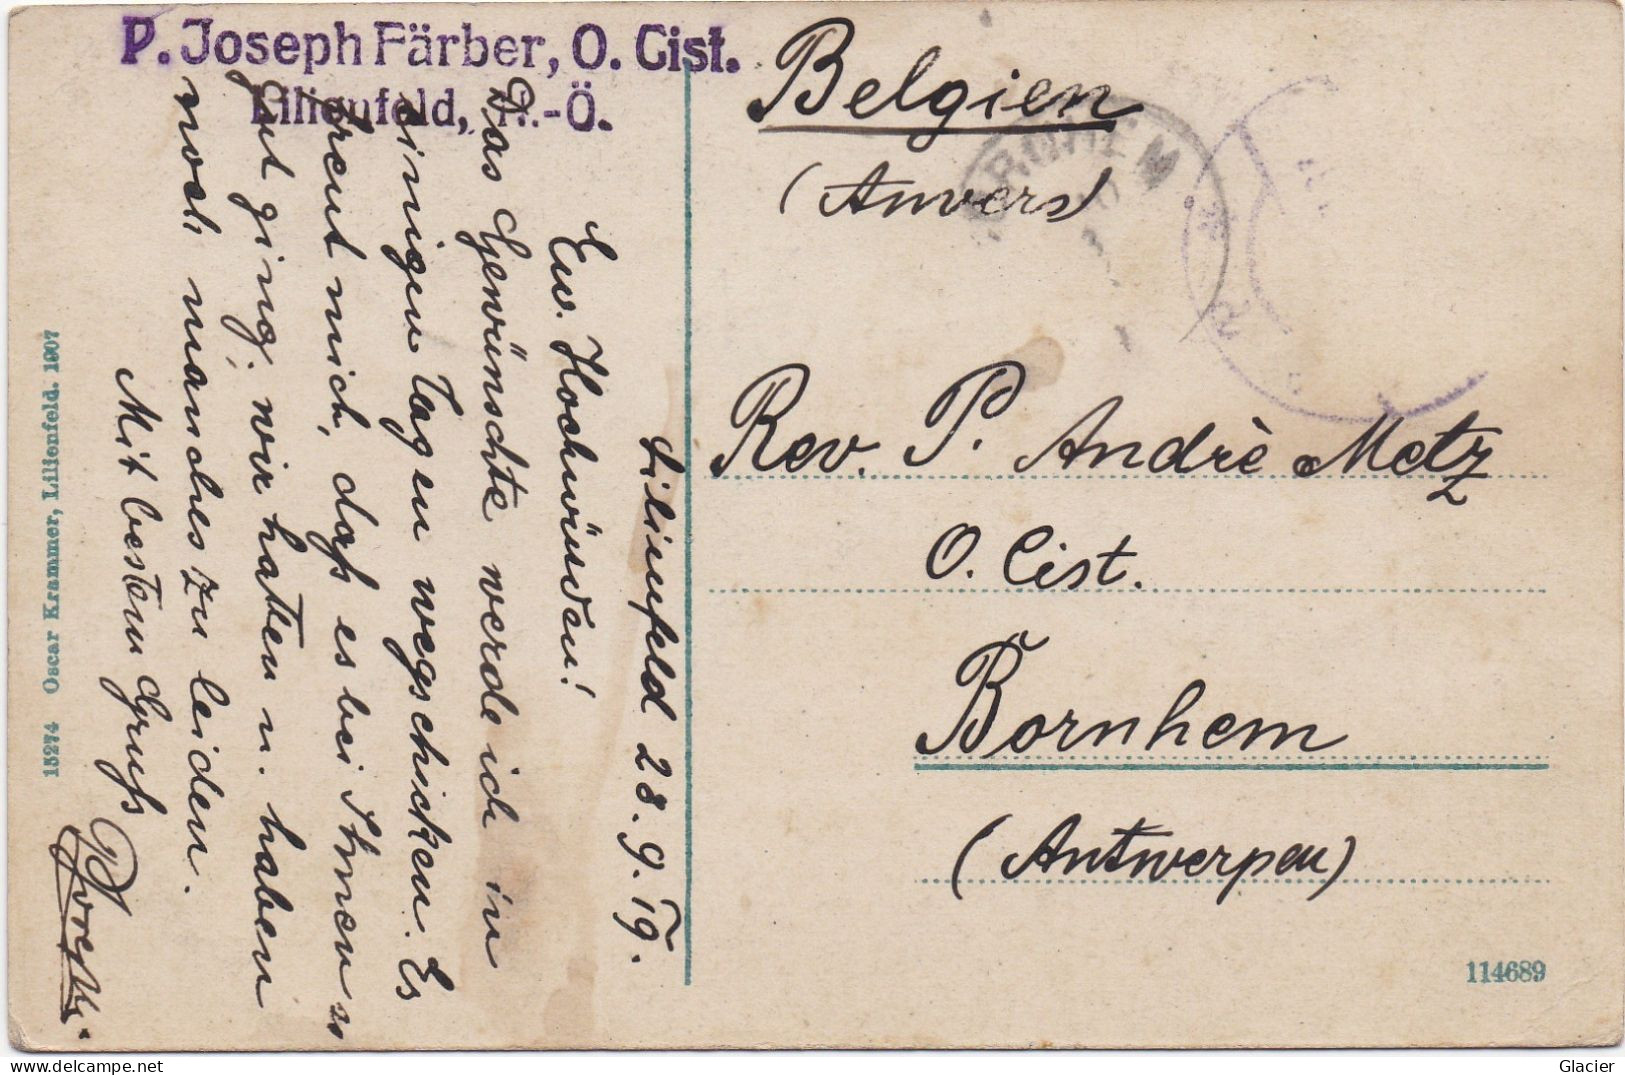 P. Joseph Färber, O. Cist.
Lilienfeld, N.-Ö.
Lilienfeld 28.9.19.
Ew. Hochwürden!
Das Gewünschte werde ich in
einigen Tagen wegschicken. Es
freut mich, daß es bei Ihnen so
gut ging; wir hatten u. haben
noch manches zu leiden.
Mit bestem Gruß
15274 Oscar Krammer, Lilienfeld. 1907
Belgien
(Anvers)
BORNHEM
Rev. P. Andrè Metz
O. Cist.
Bornhem
(Antwerpen)
114689
Glacier